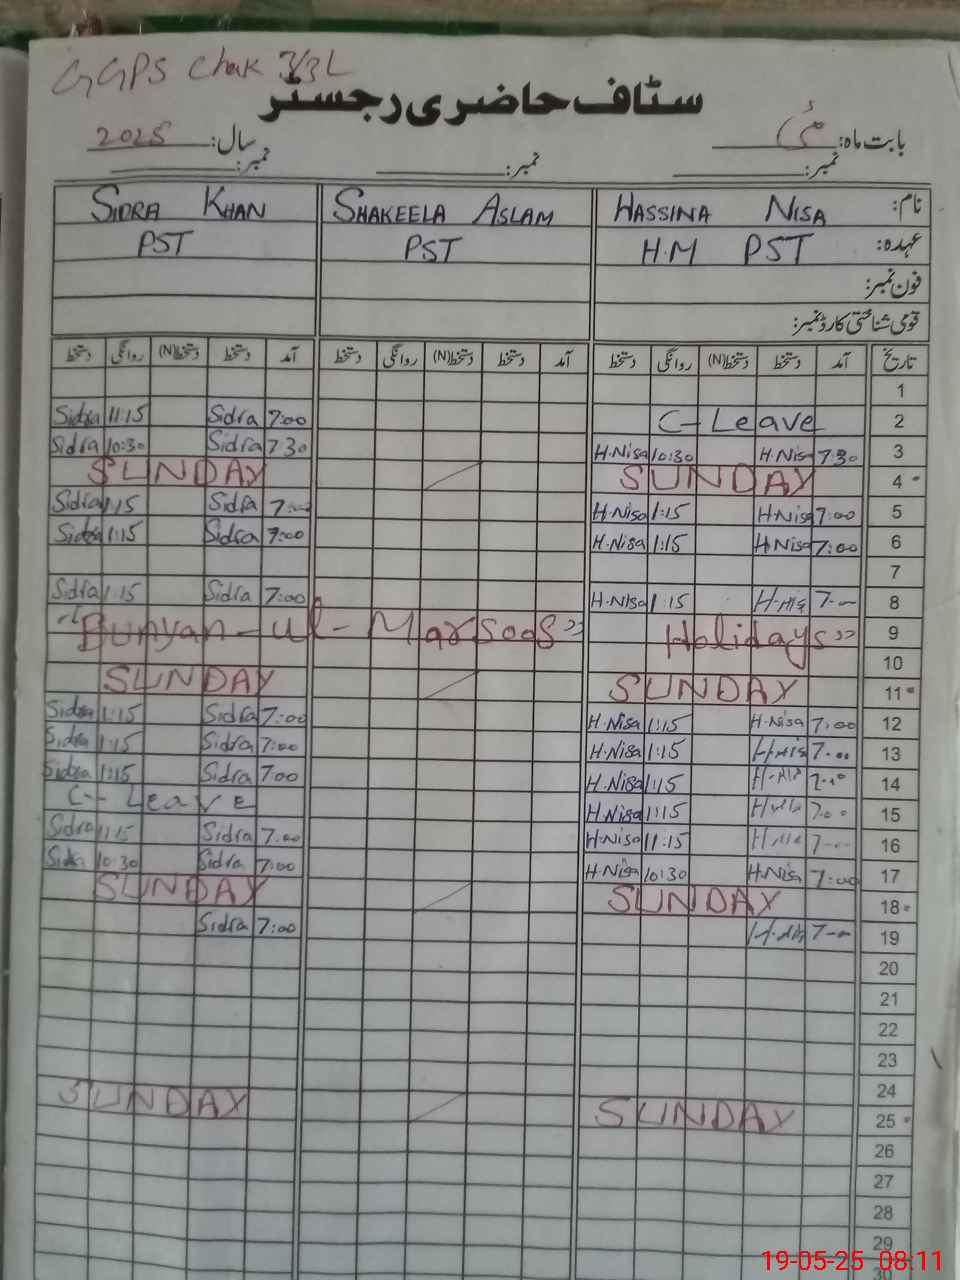 GGPS Chak 3/3L
سٹاف حاضری رجسٹر
بابت ماہ: مئی سال: 2025
نمبر: نمبر: نمبر:
نام: HASSINA NISA SHAKEELA ASLAM SIDRA KHAN
عہدہ: H.M PST PST PST
فون نمبر:
قومی شناختی کارڈ نمبر:
تاریخ آمد دستخط دستخط(N) روانگی دستخط آمد دستخط دستخط(N) روانگی دستخط آمد دستخط دستخط(N) روانگی دستخط
1
Sidra 11:15 Sidra 7:00 C-Leave 2
Sidra 10:30 Sidra 7:30 H.Nisa 10:30 H.Nisa 7:30 3
SUNDAY SUNDAY 4
Sidra 1:15 Sidra 7:00 H.Nisa 1:15 H.Nisa 7:00 5
Sidra 1:15 Sidra 7:00 H.Nisa 1:15 H.Nisa 7:00 6
7
Sidra 1:15 Sidra 7:00 H.Nisa 1:15 7- 8
"Bunyan-ul-Marsoos" Holidays" 9
10
SUNDAY SUNDAY 11
Sidra 1:15 Sidra 7:00 H.Nisa 1:15 H.Nisa 7:00 12
Sidra 1:15 Sidra 7:00 H.Nisa 1:15 7:00 13
Sidra 1:15 Sidra 7:00 H.Nisa 1:15 7:00 14
C-Leave H.Nisa 1:15 7:00 15
Sidra 1:15 Sidra 7:00 H.Nisa 11:15 7- 16
Sidra 10:30 Sidra 7:00 H.Nisa 10:30 H.Nisa 7:00 17
SUNDAY SUNDAY 18
Sidra 7:00 7- 19
20
21
22
23
24
SUNDAY SUNDAY 25
26
27
28
29
19-05-25 08:11